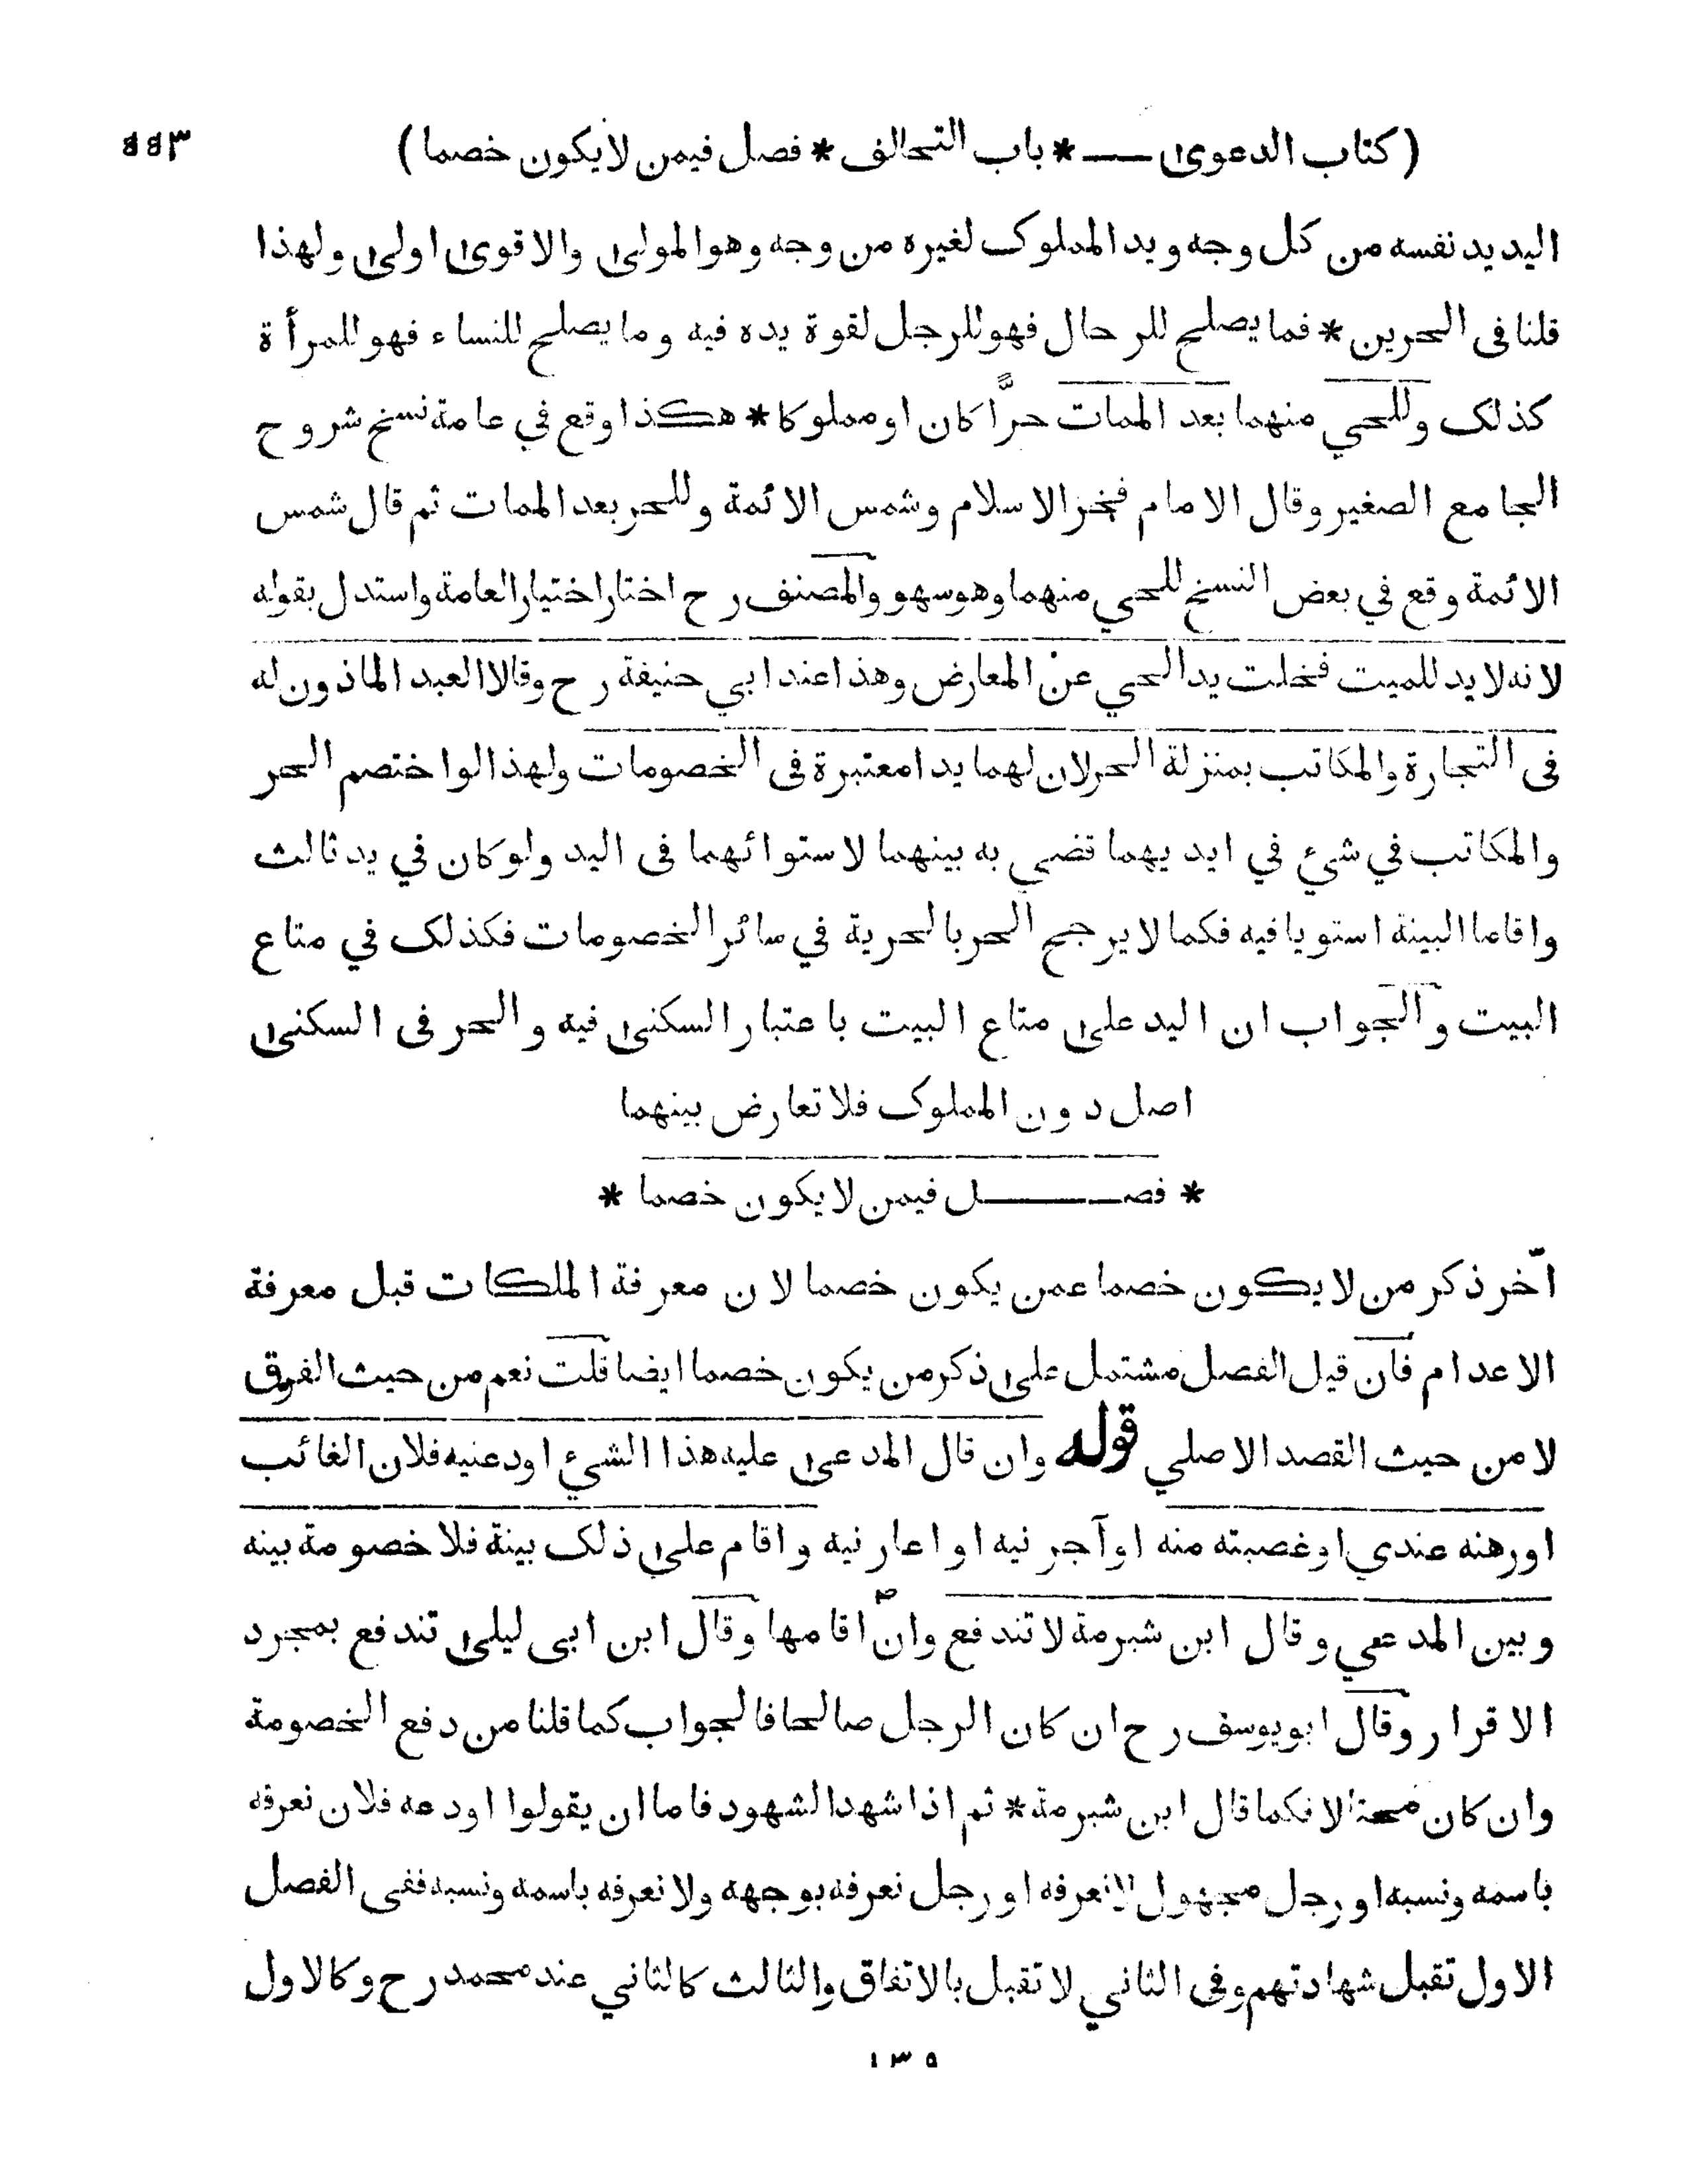 (كتاب الدعوى — * باب التحالف * فصل فيمن لا يكون خصما)
اليد يد نفسه من كل وجه ويد المملوك لغيره من وجه وهو المولى والاقوى اولى ولهذا
قلنا فى الحرين * فما يصلح للرحال فهو للرجل لقوة يده فيه وما يصلح للنساء فهو للمرأة
كذلك وللحي منهما بعد الممات حرًّا كان او مملوكا * هكذا وقع في عامة نسخ شروح
الجامع الصغير وقال الامام فخر الاسلام وشمس الائمة وللحر بعد الممات ثم قال شمس
الائمة وقع في بعض النسخ للحي منهما وهو سهو والمصنف رح اختار اختيار العامة واستدل بقوله
لانه لا يد للميت فخلت يد الحي عن المعارض وهذا عند ابي حنيفة رح وقالا العبد الماذون له
فى التجارة والمكاتب بمنزلة الحر لان لهما يدا معتبرة فى الخصومات ولهذا لو اختصم الحر
والمكاتب في شيء في ايديهما قضي به بينهما لاستوائهما فى اليد ولو كان في يد ثالث
واقاما البينة استويا فيه فكما لا يرجح الحر بالحرية في سائر الخصومات فكذلك في متاع
البيت والجواب ان اليد على متاع البيت باعتبار السكنى فيه والحر فى السكنى
اصل دون المملوك فلا تعارض بينهما
* فصل فيمن لا يكون خصما *
اخّر ذكر من لا يكون خصما عمن يكون خصما لان معرفة الملكات قبل معرفة
الاعدام فان قيل الفصل مشتمل على ذكر من يكون خصما ايضا قلت نعم من حيث الفرق
لا من حيث القصد الاصلي قوله وان قال المدعى عليه هذا الشيء اودعنيه فلان الغائب
او رهنه عندي او غصبته منه او آجرنيه او اعارنيه واقام على ذلك بينة فلا خصومة بينه
وبين المدعي وقال ابن شبرمة لا تندفع وان اقامها وقال ابن ابى ليلى تندفع بمجرد
الاقرار وقال ابو يوسف رح ان كان الرجل صالحا فالجواب كما قلنا من دفع الخصومة
وان كان محتالا فكما قال ابن شبرمة * ثم اذا شهد الشهود فاما ان يقولوا اودعه فلان نعرفه
باسمه ونسبه او رجل مجهول لا نعرفه او رجل نعرفه بوجهه ولا نعرفه باسمه ونسبه ففى الفصل
الاول تقبل شهادتهم وفى الثاني لا تقبل بالاتفاق والثالث كالثاني عند محمد رح وكالاول